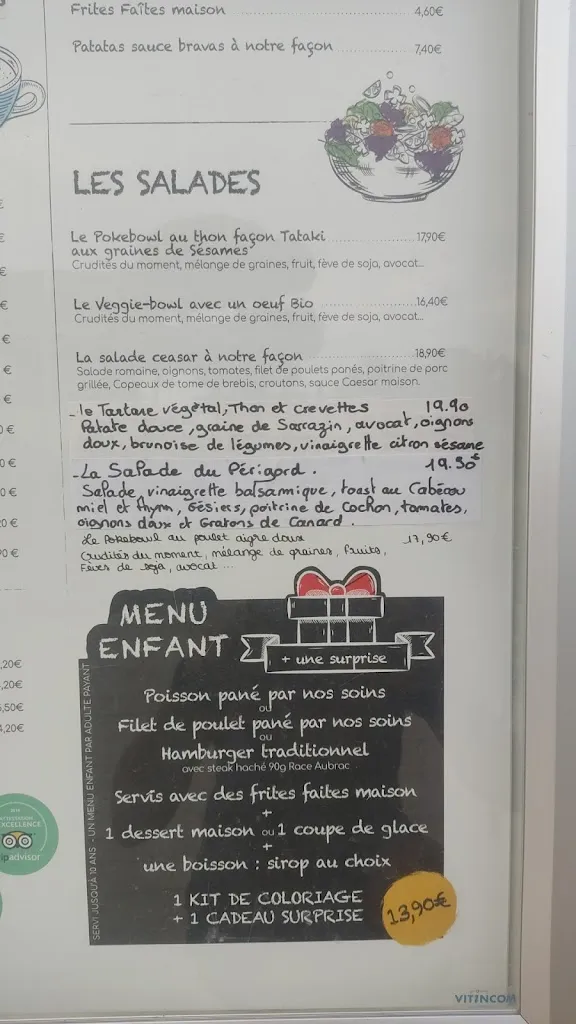 Frites Faîtes maison 4,60€
Patatas sauce bravas à notre façon 7,40€
LES SALADES
Le Pokebowl au thon façon Tataki 17,90€
aux graines de Sésames
Crudités du moment, mélange de graines, fruit, fève de soja, avocat...
Le Veggie-bowl avec un oeuf Bio 16,40€
Crudités du moment, mélange de graines, fruit, fève de soja, avocat...
La salade ceasar à notre façon 18,90€
Salade romaine, oignons, tomates, filet de poulets panés, poitrine de porc
grillée, Copeaux de tome de brebis, croutons, sauce Caesar maison.
- le Tartare végétal, Thon et crevettes 19.90
Patate douce, graine de Sarrazin, avocat, oignons
doux, brunoise de légumes, vinaigrette citron sésame
- La Salade du Périgord. 19.50€
Salade, vinaigrette balsamique, toast au Cabécou
miel et thym, Gésiers, poitrine de Cochon, tomates,
oignons doux et Gratons de Canard.
Le Pokebowl au poulet aigre doux 17,90€
Crudités du moment, mélange de graines, fruits,
Fèves de soja, avocat ...
MENU
ENFANT
+ une surprise
Poisson pané par nos soins
ou
Filet de poulet pané par nos soins
ou
Hamburger traditionnel
avec steak haché 90g Race Aubrac
Servis avec des frites faites maison
+
1 dessert maison ou 1 coupe de glace
+
une boisson : sirop au choix
1 KIT DE COLORIAGE
+ 1 CADEAU SURPRISE
13,90€
SERVI JUSQU'À 10 ANS - UN MENU ENFANT PAR ADULTE PAYANT
,20€
,20€
,50€
4,20€
EXCELLENCE
tripadvisor
VITINCOM